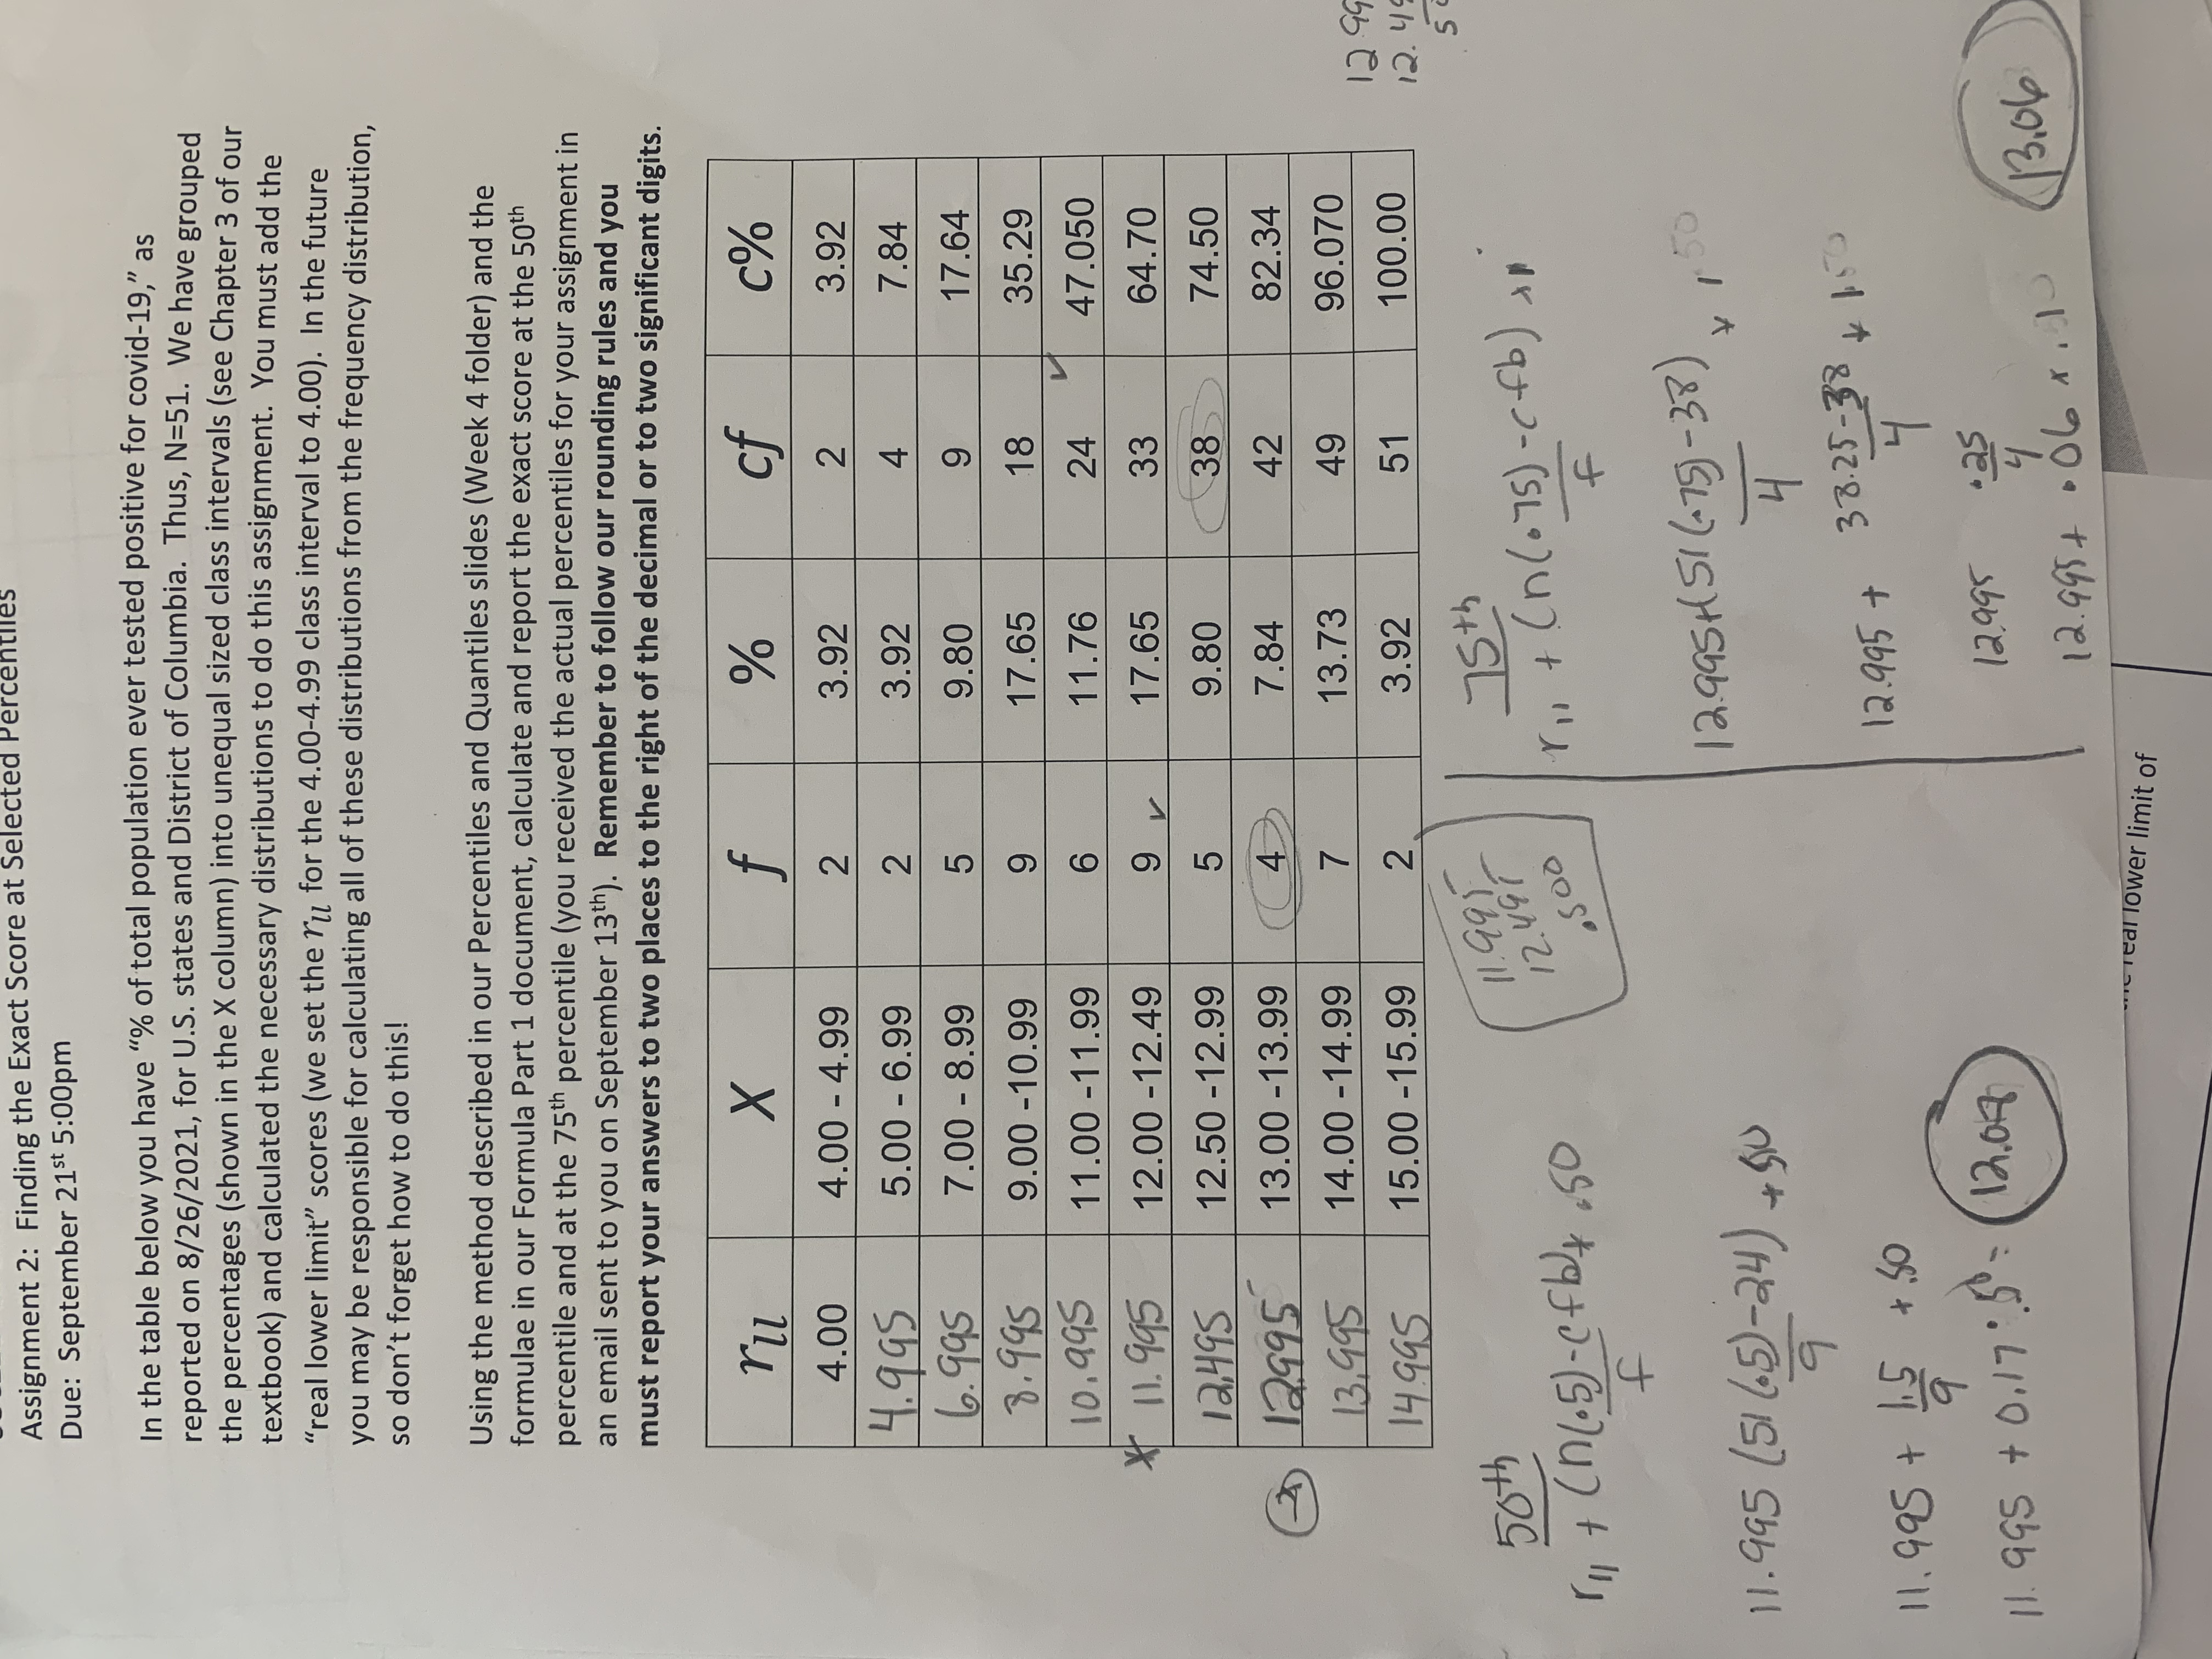 Assignment 2: Finding the Exact Score at Selected Percentiles
Due: September 21st 5:00pm
In the table below you have “% of total population ever tested positive for covid-19,” as
reported on 8/26/2021, for U.S. states and District of Columbia. Thus, N=51. We have grouped
the percentages (shown in the X column) into unequal sized class intervals (see Chapter 3 of our
textbook) and calculated the necessary distributions to do this assignment. You must add the
“real lower limit” scores (we set the rll for the 4.00-4.99 class interval to 4.00). In the future
you may be responsible for calculating all of these distributions from the frequency distribution,
so don’t forget how to do this!
Using the method described in our Percentiles and Quantiles slides (Week 4 folder) and the
formulae in our Formula Part 1 document, calculate and report the exact score at the 50th
percentile and at the 75th percentile (you received the actual percentiles for your assignment in
an email sent to you on September 13th). Remember to follow our rounding rules and you
must report your answers to two places to the right of the decimal or to two significant digits.
rll X f % cf c%
4.00 4.00 - 4.99 2 3.92 2 3.92
4.995 5.00 - 6.99 2 3.92 4 7.84
6.995 7.00 - 8.99 5 9.80 9 17.64
8.995 9.00 -10.99 9 17.65 18 35.29
10.995 11.00 -11.99 6 11.76 24 ✓ 47.050
* 11.995 12.00 -12.49 9 ✓ 17.65 33 64.70
12.495 12.50 -12.99 5 9.80 38 74.50
12.995 13.00 -13.99 4 7.84 42 82.34
13.995 14.00 -14.99 7 13.73 49 96.070
14.995 15.00 -15.99 2 3.92 51 100.00
50th
rll + (n(.5)-cfb) * .50
f
11.995 (51(.5)-24) * .50
9
11.995 + 1.5 * .50
9
11.995 + 0.17 · .50 =
12.08
11.995
12.495
.500
75th
rll + (n(.75)-cfb) x i
f
12.995+(51(.75)-38) * 1.50
4
12.995 + 38.25-38 * 1.50
4
12.995 .25
4
12.995 + .06 x
13.06
12.99
12.49